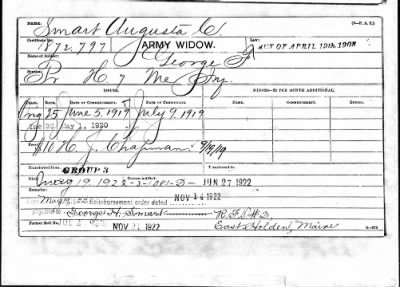 (F. A. S.)
NAME: Smart Augusta C.
Certificate No. LAW:
1872.797 ARMY WIDOW. ACT OF APRIL 19th, 1908
Name of Soldier: George F.
Service: Pr H. 7 Me Inf.
ISSUE. MINORS—$2 PER MONTH ADDITIONAL.
CLASS. RATE. DATE OF COMMENCEMENT. DATE OF CERTIFICATE. NAME. COMMENCEMENT. ENDING.
Orig 25 June 5, 1919 July 9, 1919
30 May 1, 1920
$10 H. J. Chapman 9/19/19
GROUP 3
Transferred to
Died 19, 1922 3-1081-D JUN 27 1922
Remarks:
Reimbursement order dated NOV 24 1922
George H. Smart R.F.D. #2,
Former Roll No. NOV 1922 East Holden, Maine